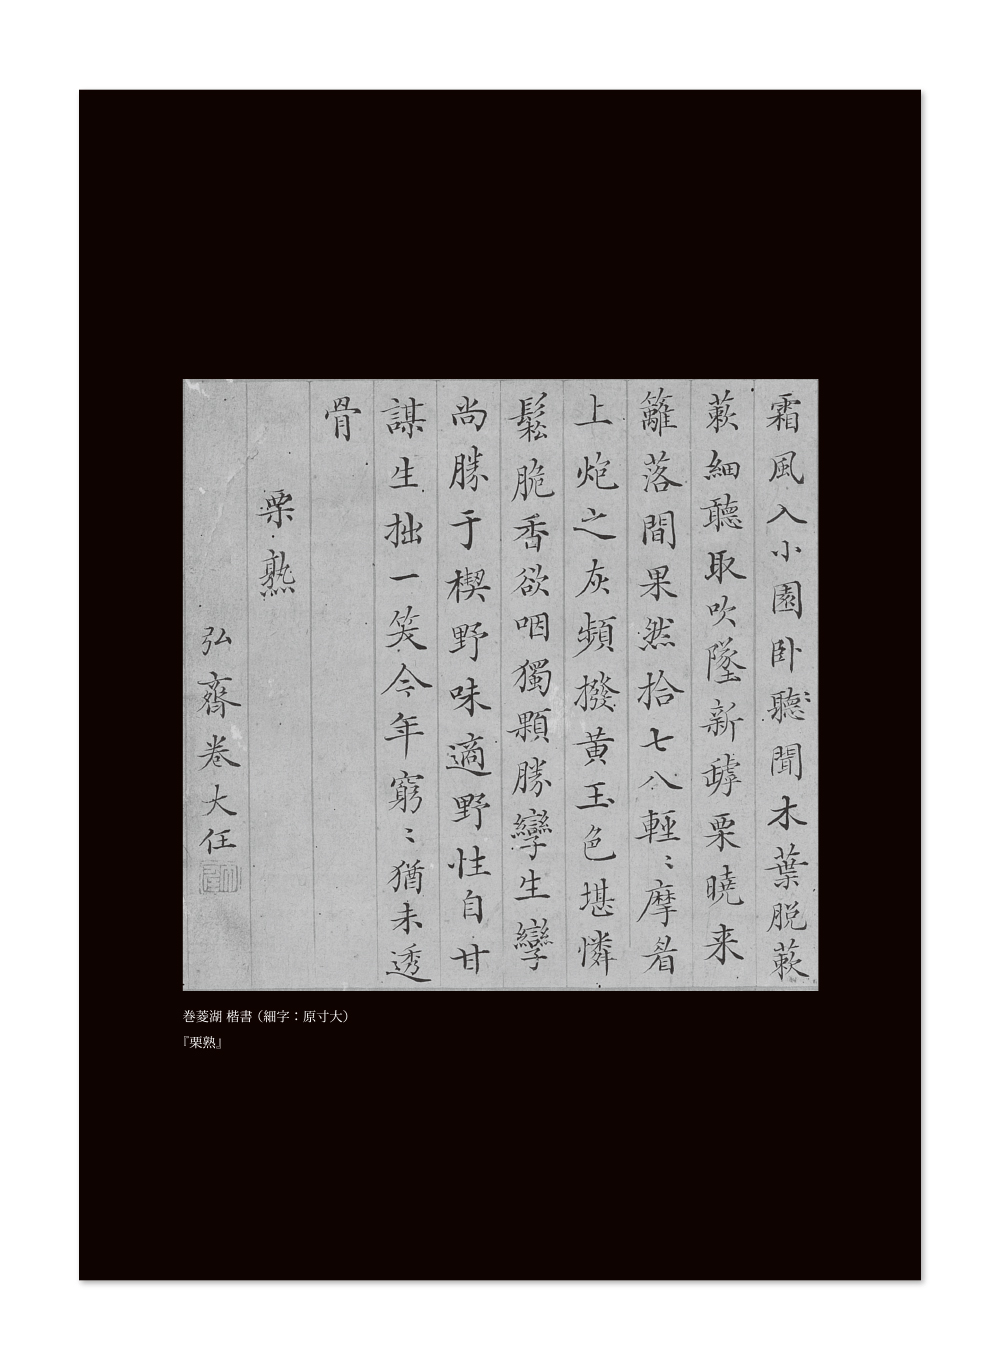 霜風入小園卧聽聞木葉脱蔌
蔌細聽取吹墜新罅栗曉来
籬落間果然拾七八輕〻摩着
上炮之灰頻撥黄玉色堪憐
鬆脆香欲咽獨顆勝孿生孿
尚勝于楔野味適野性自甘
謀生拙一笑今年窮〻猶未透
骨
栗熟
弘齋巻大任
巻菱湖 楷書（細字：原寸大）
『栗熟』